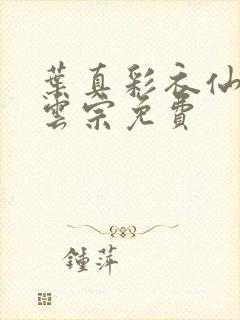 葉真彩衣仙
雲宗免費
鍾萍